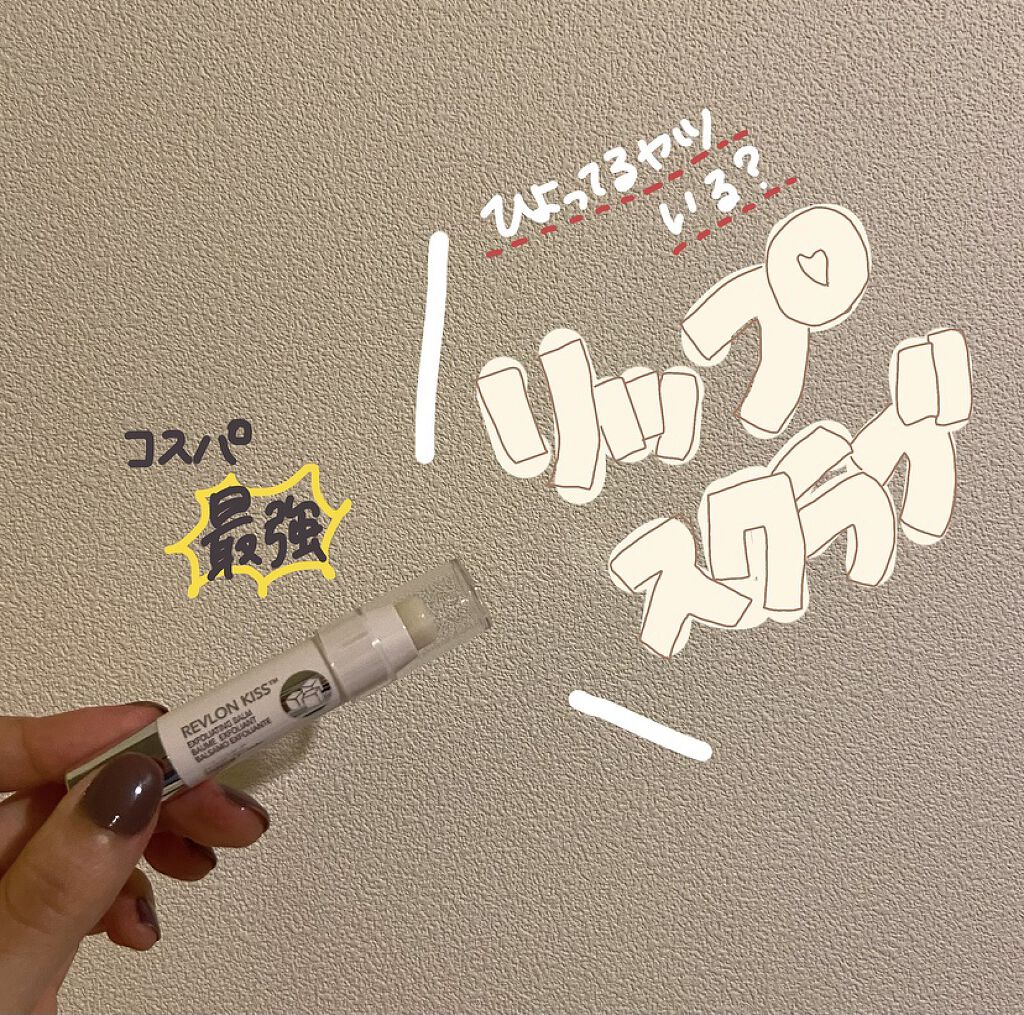 ひよってるヤツ
いる?
リップ
スクラブ
コスパ
最強
REVLON KISS™
EXFOLIATING BALM
BAUME EXFOLIANT
BALSAMO EXFOLIANTE